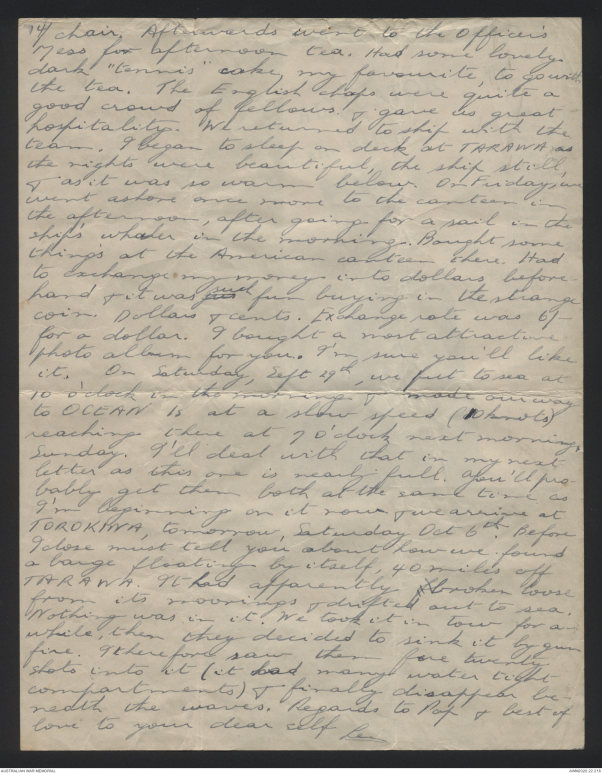 14/ chair. Afterwards went to the Officer's
Mess for afternoon tea. Had some lovely
dark "tennis" cake, my favourite, to go with
the tea. The English chaps were quite a
good crowd of fellows & gave us great
hospitality. We returned to ship with the
team. I began to sleep on deck at TARAWA as
the nights were beautiful, the ship still,
& as it was so warm below. On Friday, we
went ashore once more to the canteen in
the afternoon, after going for a sail in the
ship's whaler in the morning. Bought some
things at the American canteen there. Had
to exchange my money into dollars before-
hand & it was such fun buying in the strange
coin. Dollars & cents. Exchange rate was 6/-
for a dollar. I bought a most attractive
photo album for you. I'm sure you'll like
it. On Saturday, Sept 29th, we put to sea at
10 o'clock in the morning & made our way
to OCEAN Is at a slow speed (10 knots)
reaching there at 7 o'clock next morning,
Sunday. I'll deal with that in my next
letter as this one is nearly full. You'll pro-
bably get them both at the same time as
I'm beginning on it now & we arrive at
TOROKINA, tomorrow, Saturday Oct 6th. Before
I close must tell you about how we found
a barge floating by itself, 40 miles off
TARAWA. It had apparently broken loose
from its moorings & drifted out to sea.
Nothing was in it. We took it in tow for a
while, then they decided to sink it by gun
fire. I therefore saw them fire twenty
shots into it (it had many water tight
compartments) & finally disappear be-
neath the waves. Regards to Pop & best of
love to your dear self Ken
AUSTRALIAN WAR MEMORIAL